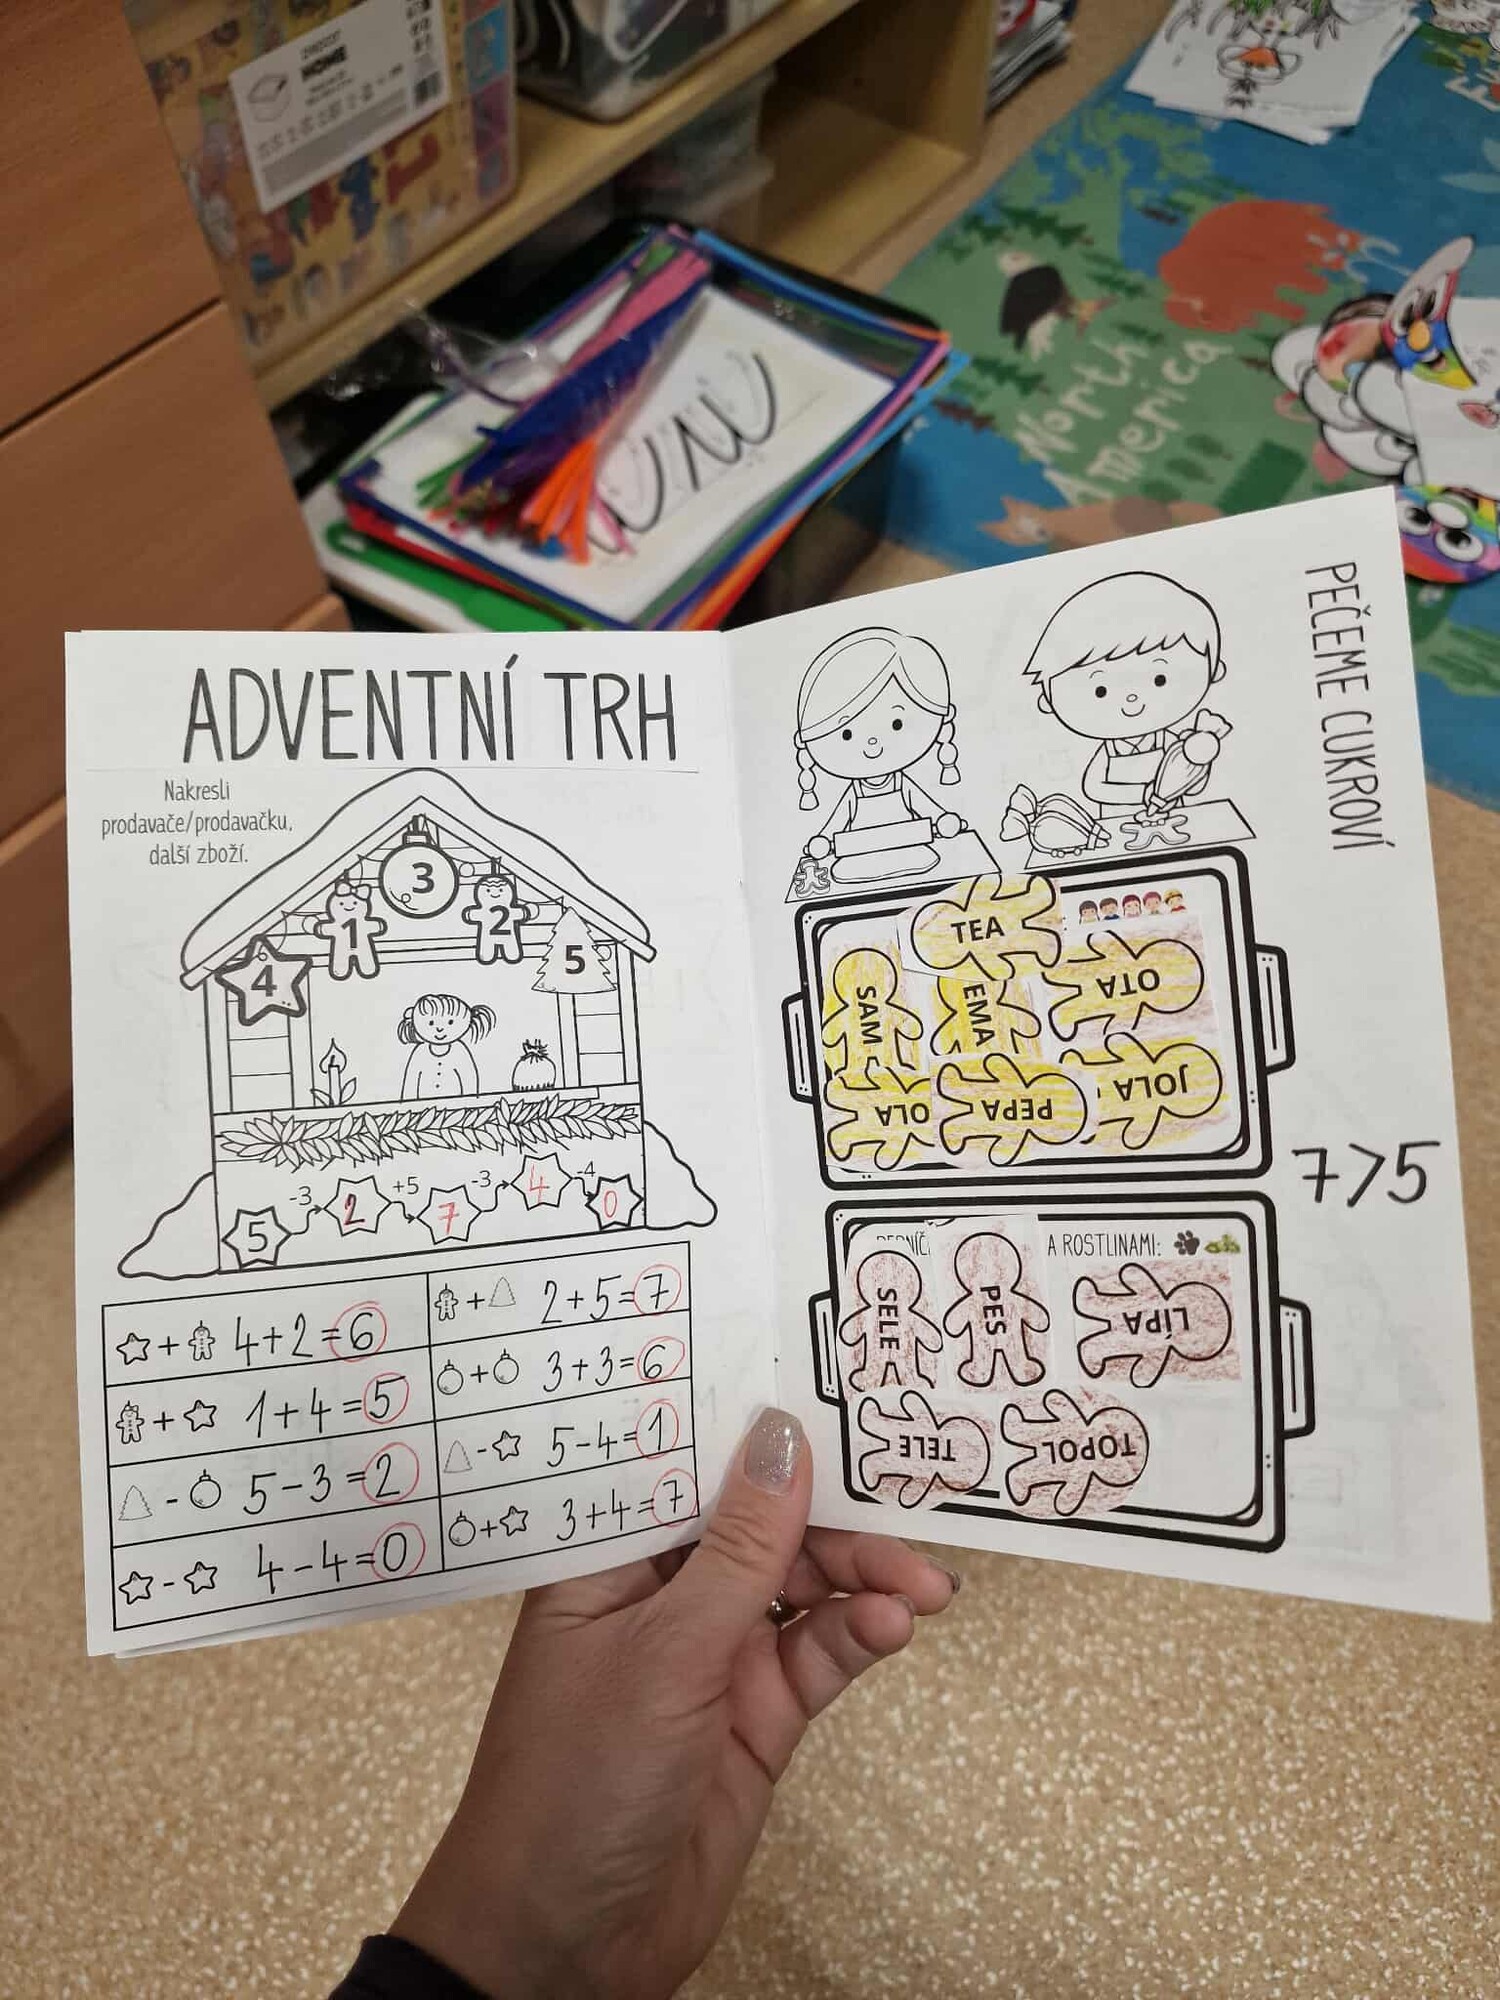 HOME
uu
North
America
ADVENTNÍ TRH
Nakresli
prodavače/prodavačku,
další zboží.
3
1
2
4
5
-3
+5
-3
-4
5
2
7
4
0
4+2=6
2+5=7
1+4=5
3+3=6
5-3=2
5-4=1
4-4=0
3+4=7
PEČEME CUKROVÍ
TEA
SAM
EMA
OTA
OLA
PEPA
JOLA
7>5
A ROSTLINAMI:
SELE
PES
LÍPA
TELE
TOPOL